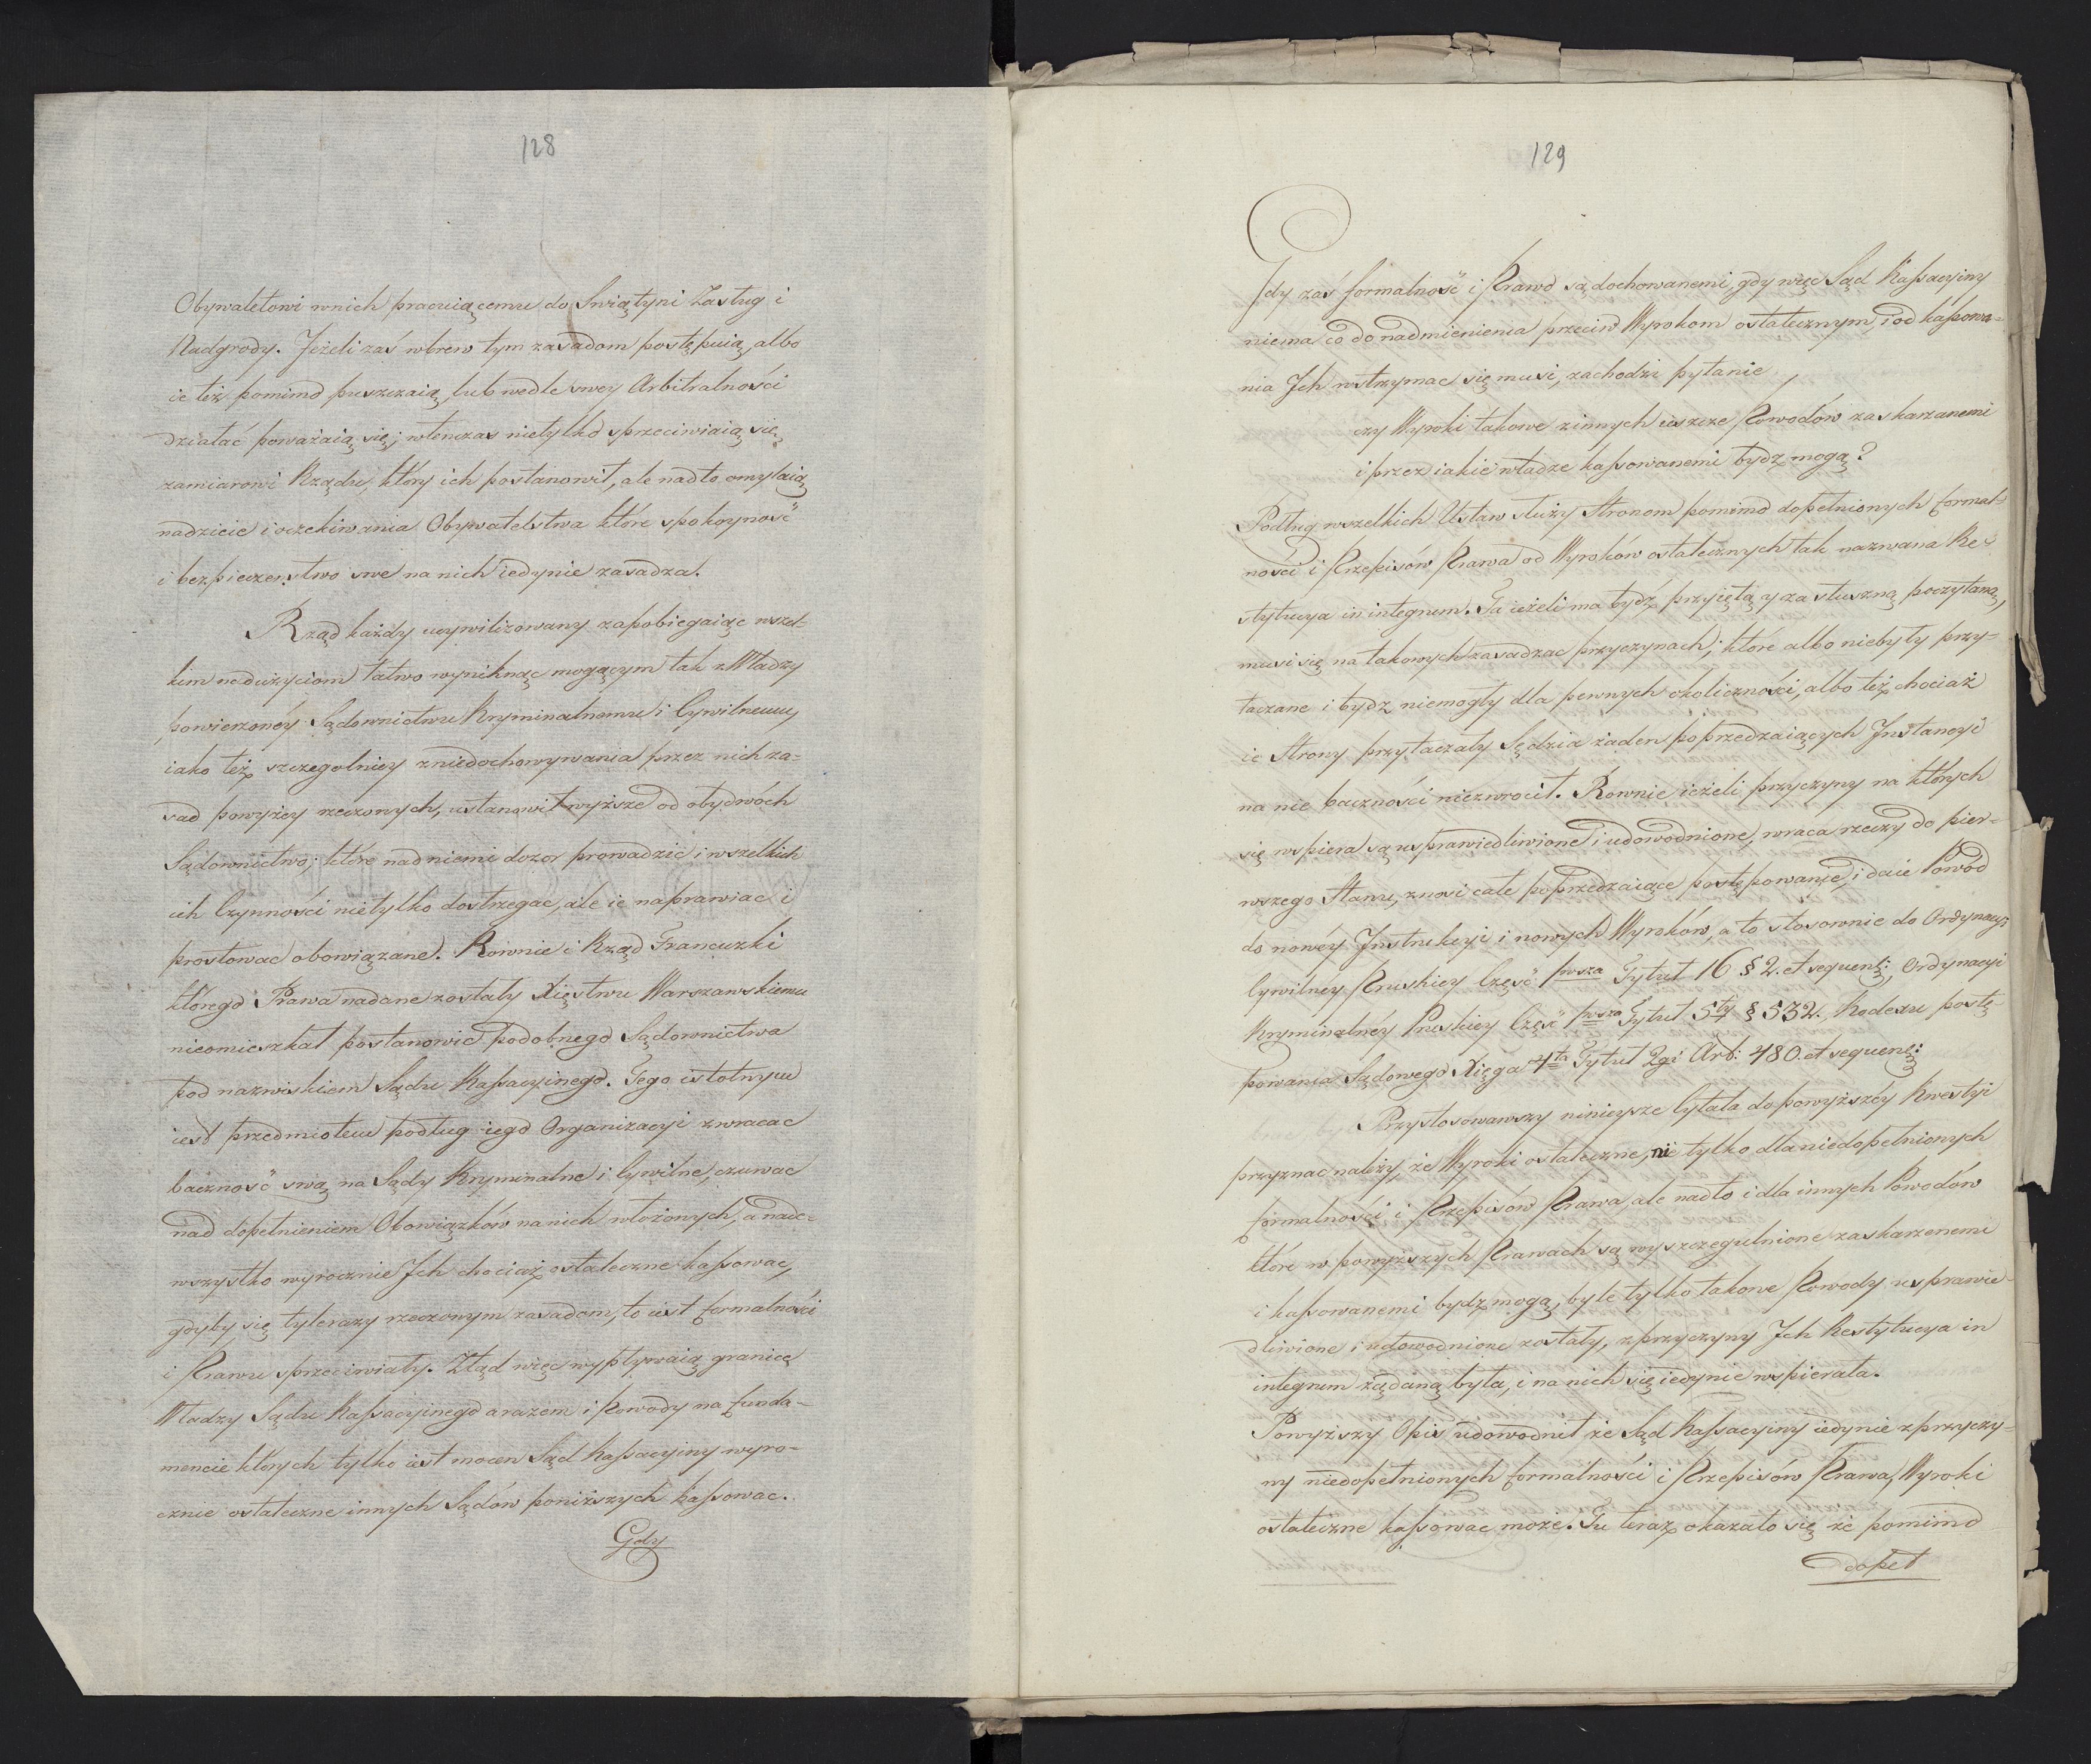 128
Obywatelowi wnich pracuiącemu do Swiątyni Zasług i
Nadgrody. Jeżeli zaś wbrew tym zasadom postępuią, albo
ie też pomimo puszczaią, lub wedle swey Arbitralności
działać poważaią się; wtenczas nietylko sprzeciwiaią się
zamiarowi Rządu, który ich postanowił, ale nadto omylaią
nadzieie i oczekiwania Obywatelstwa które spokoyność
i bezpieczeństwo swe na nich iedynie zasadza.
Rząd każdy ucywilizowany zapobiegaiąc wszel-
kim nadużyciom łatwo wyniknąc mogącym tak z Władzy
powierzonéy Sądownictwu Kryminalnemu i Cywilnemu,
iako też szczegolniey zniedochowywania przez nich za-
sad powyżey rzeczonych, ustanowił wyższe od obydwóch
Sądownictwo; które nad niemi dozor prowadzić i wszelkich
ich Czynności nietylko dostrzegac, ale ie naprawiac i
prostowac obowiązane. Rownie i Rząd Francuzki
którego Prawa nadane zostały Xięstwu Warszawskiemu
nieomieszkał postanowić podobnego Sądownictwa
pod nazwiskiem Sądu Kassacyinego. Tego istotnym
iest przedmiotem podług iego Organizacyi zwracac
baczność swą na Sądy Kryminalne i Cywilne, czuwac
nad dopełnieniem Obowiązków na nich włożonych, a nade-
wszystko wyrocznie Ich chociaż ostateczne kassowac,
gdyby się tylerazy rzeczonym zasadom, to iest formalności
i Prawu sprzeciwiały. Ztąd więc wypływaią granice
Władzy Sądu Kassacyinego a razem i Powody na funda-
mencie których tylko iest mocen Sąd Kassacyiny wyro-
cznie ostateczne innych Sądów poniższych kassowac.
Gdy
129
Gdy zaś formalność i Prawo są dochowanemi, gdy więc Sąd Kassacyiny
niema co do nadmienienia przeciw Wyrokom ostatecznym, i od kassowa-
nia Ich wstrzymac się musi, zachodzi pytanie,
czy Wyroki takowe z innych ieszcze Powodów zaskarzanemi
i przez iakie władze kassowanemi bydz mogą?
Podług wszelkich Ustaw służy Stronom pomimo dopełnionych formal-
ności i Przepisów Prawa od Wyroków ostatecznych tak nazwana Re-
stytucya in integrum. Ta ieżeli ma bydz przyiętą y za słuszną poczytaną,
musi się na takowych zasadzac przyczynach; które albo niebyły przy-
taczane i bydz niemogły dla pewnych okoliczności, albo też chociaż
ie Strony przytaczały Sędzia żaden poprzedzaiących Instancyi
na nie baczności niezwrocił. Rownie ieżeli przyczyny na których
się wspiera są usprawiedliwione i udowodnione, wraca rzeczy do pier-
wszego Stanu, znosi całe poprzedzaiące postępowanie, i daie Powód
do nowéy Instrukcyi i nowych Wyroków, a to stosownie do Ordynacyi
Cywilney Pruskiey Część pwsza Tytuł 16 § 2. et sequent; Ordynacyi
Kryminalnéy Pruskiey Część pwsza Tytuł 5ty § 532. Kodexu postę-
powania Sądowego Xięga 4ta Tytuł 2gi Art: 480. et sequent:
Przystosowawszy ninieysze Cytata do powyższéy Kwestyi
przyznac należy, że Wyroki ostateczne, nie tylko dla niedopełnionych
formalności i Przepisów Prawa, ale nadto i dla innych Powodów
które w powyższych Prawach są wyszczegulnione zaskarzonemi
i kassowanemi bydz mogą, byle tylko takowe Powody usprawie-
dliwione i udowodnione zostały, z przyczyny Ich Restytucya in
integrum żądaną była, i na nich się iedynie wspierała.
Powyższy Opis udowodnił że Sąd Kassacyiny iedynie z przyczy-
ny niedopełnionych formalności i Przepisów Prawa, Wyroki
ostateczne kassowac może. Tu teraz okazało się że pomimo
dopeł